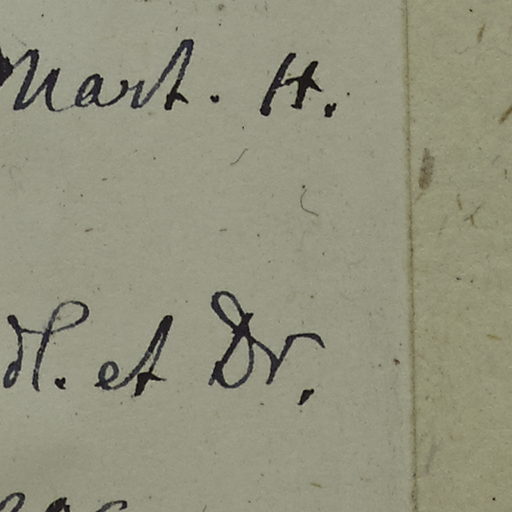 Mart. H.
dl. et Dr.